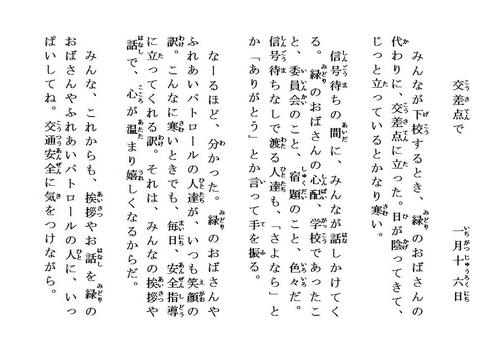 交差点で　　　一月十六日
みんなが下校するとき、緑のおばさんの
代わりに、交差点に立った。日が陰ってきて、
じっと立っているとかなり寒い。
信号待ちの間に、みんなが話しかけてく
る。緑のおばさんの心配、学校であったこ
と、委員会のこと、宿題のこと、色々だ。
信号待ちなしで渡る人達も、「さよなら」と
か「ありがとう」とか言って手を振る。
なーるほど、分かった。緑のおばさんや
ふれあいパトロールの人達が、いつも笑顔の
訳。こんなに寒いときでも、毎日、安全指導
に立ってくれる訳。それは、みんなの挨拶や
話で、心が温まり嬉しくなるからだ。
みんな、これからも、挨拶やお話を緑の
おばさんやふれあいパトロールの人に、いっ
ぱいしてね。交通安全に気をつけながら。